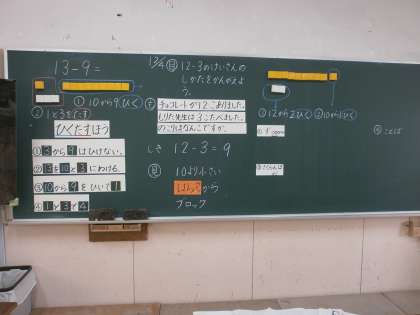 13-9=
①10から9をひく
②1と3をたす
ひくたすほう
①3から9はひけない。
②13を10と3にわける。
③10から9をひいて1
④1と3で4
13/4
12-3のけいさんの
しかたをかんがえよ
う。
チョコレートが12こありました。
もりた先生は3こたべました。
のこりはなんこですか。
しき 12-3=9
10より小さい
から
ブロック
①12から2ひく ②10から1ひく
ことば